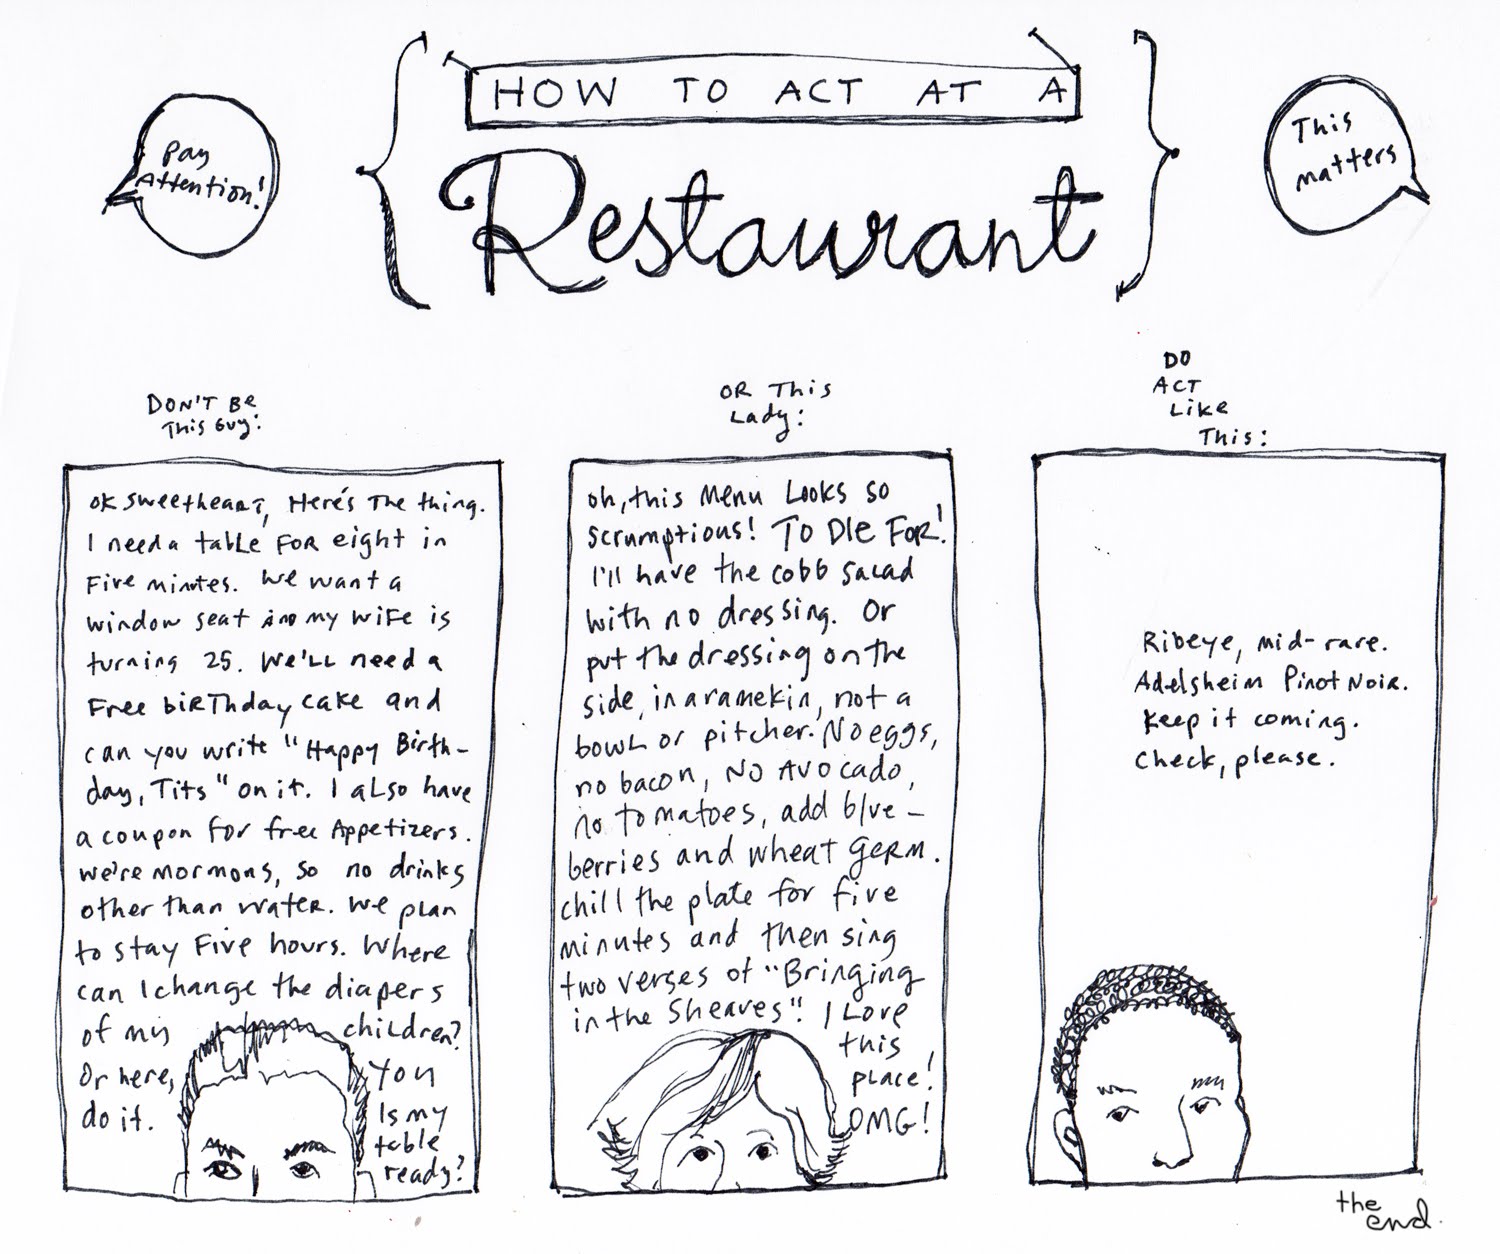 HOW TO ACT AT A
Restaurant
Pay
Attention!
This
matters
DON'T BE
This Guy:
OK sweetheart, Here's The thing.
I need a table FOR eight in
Five minutes. We want a
window seat my wife is
turning 25. We'll need a
Free birthday cake and
can you write "Happy Birth-
day, Tits" on it. I also have
a coupon for free Appetizers.
We're mormons, so no drinks
other than water. We plan
to stay Five hours. Where
can I change the diapers
of my children?
Or here, You
do it. Is my
table
ready?
OR This
Lady:
Oh, this Menu Looks so
scrumptious! TO DIE FOR!
I'll have the cobb salad
with no dressing. Or
put the dressing on the
side, in a ramekin, not a
bowl or pitcher. No eggs,
no bacon, NO AVOCADO,
no tomatoes, add blue-
berries and wheat Germ.
chill the plate for five
minutes and then sing
two verses of "Bringing
in the Sheaves". I Love
this
place!
OMG!
DO
ACT
Like
This:
Ribeye, mid-rare.
Adelsheim Pinot Noir.
Keep it coming.
Check, please.
the
end.